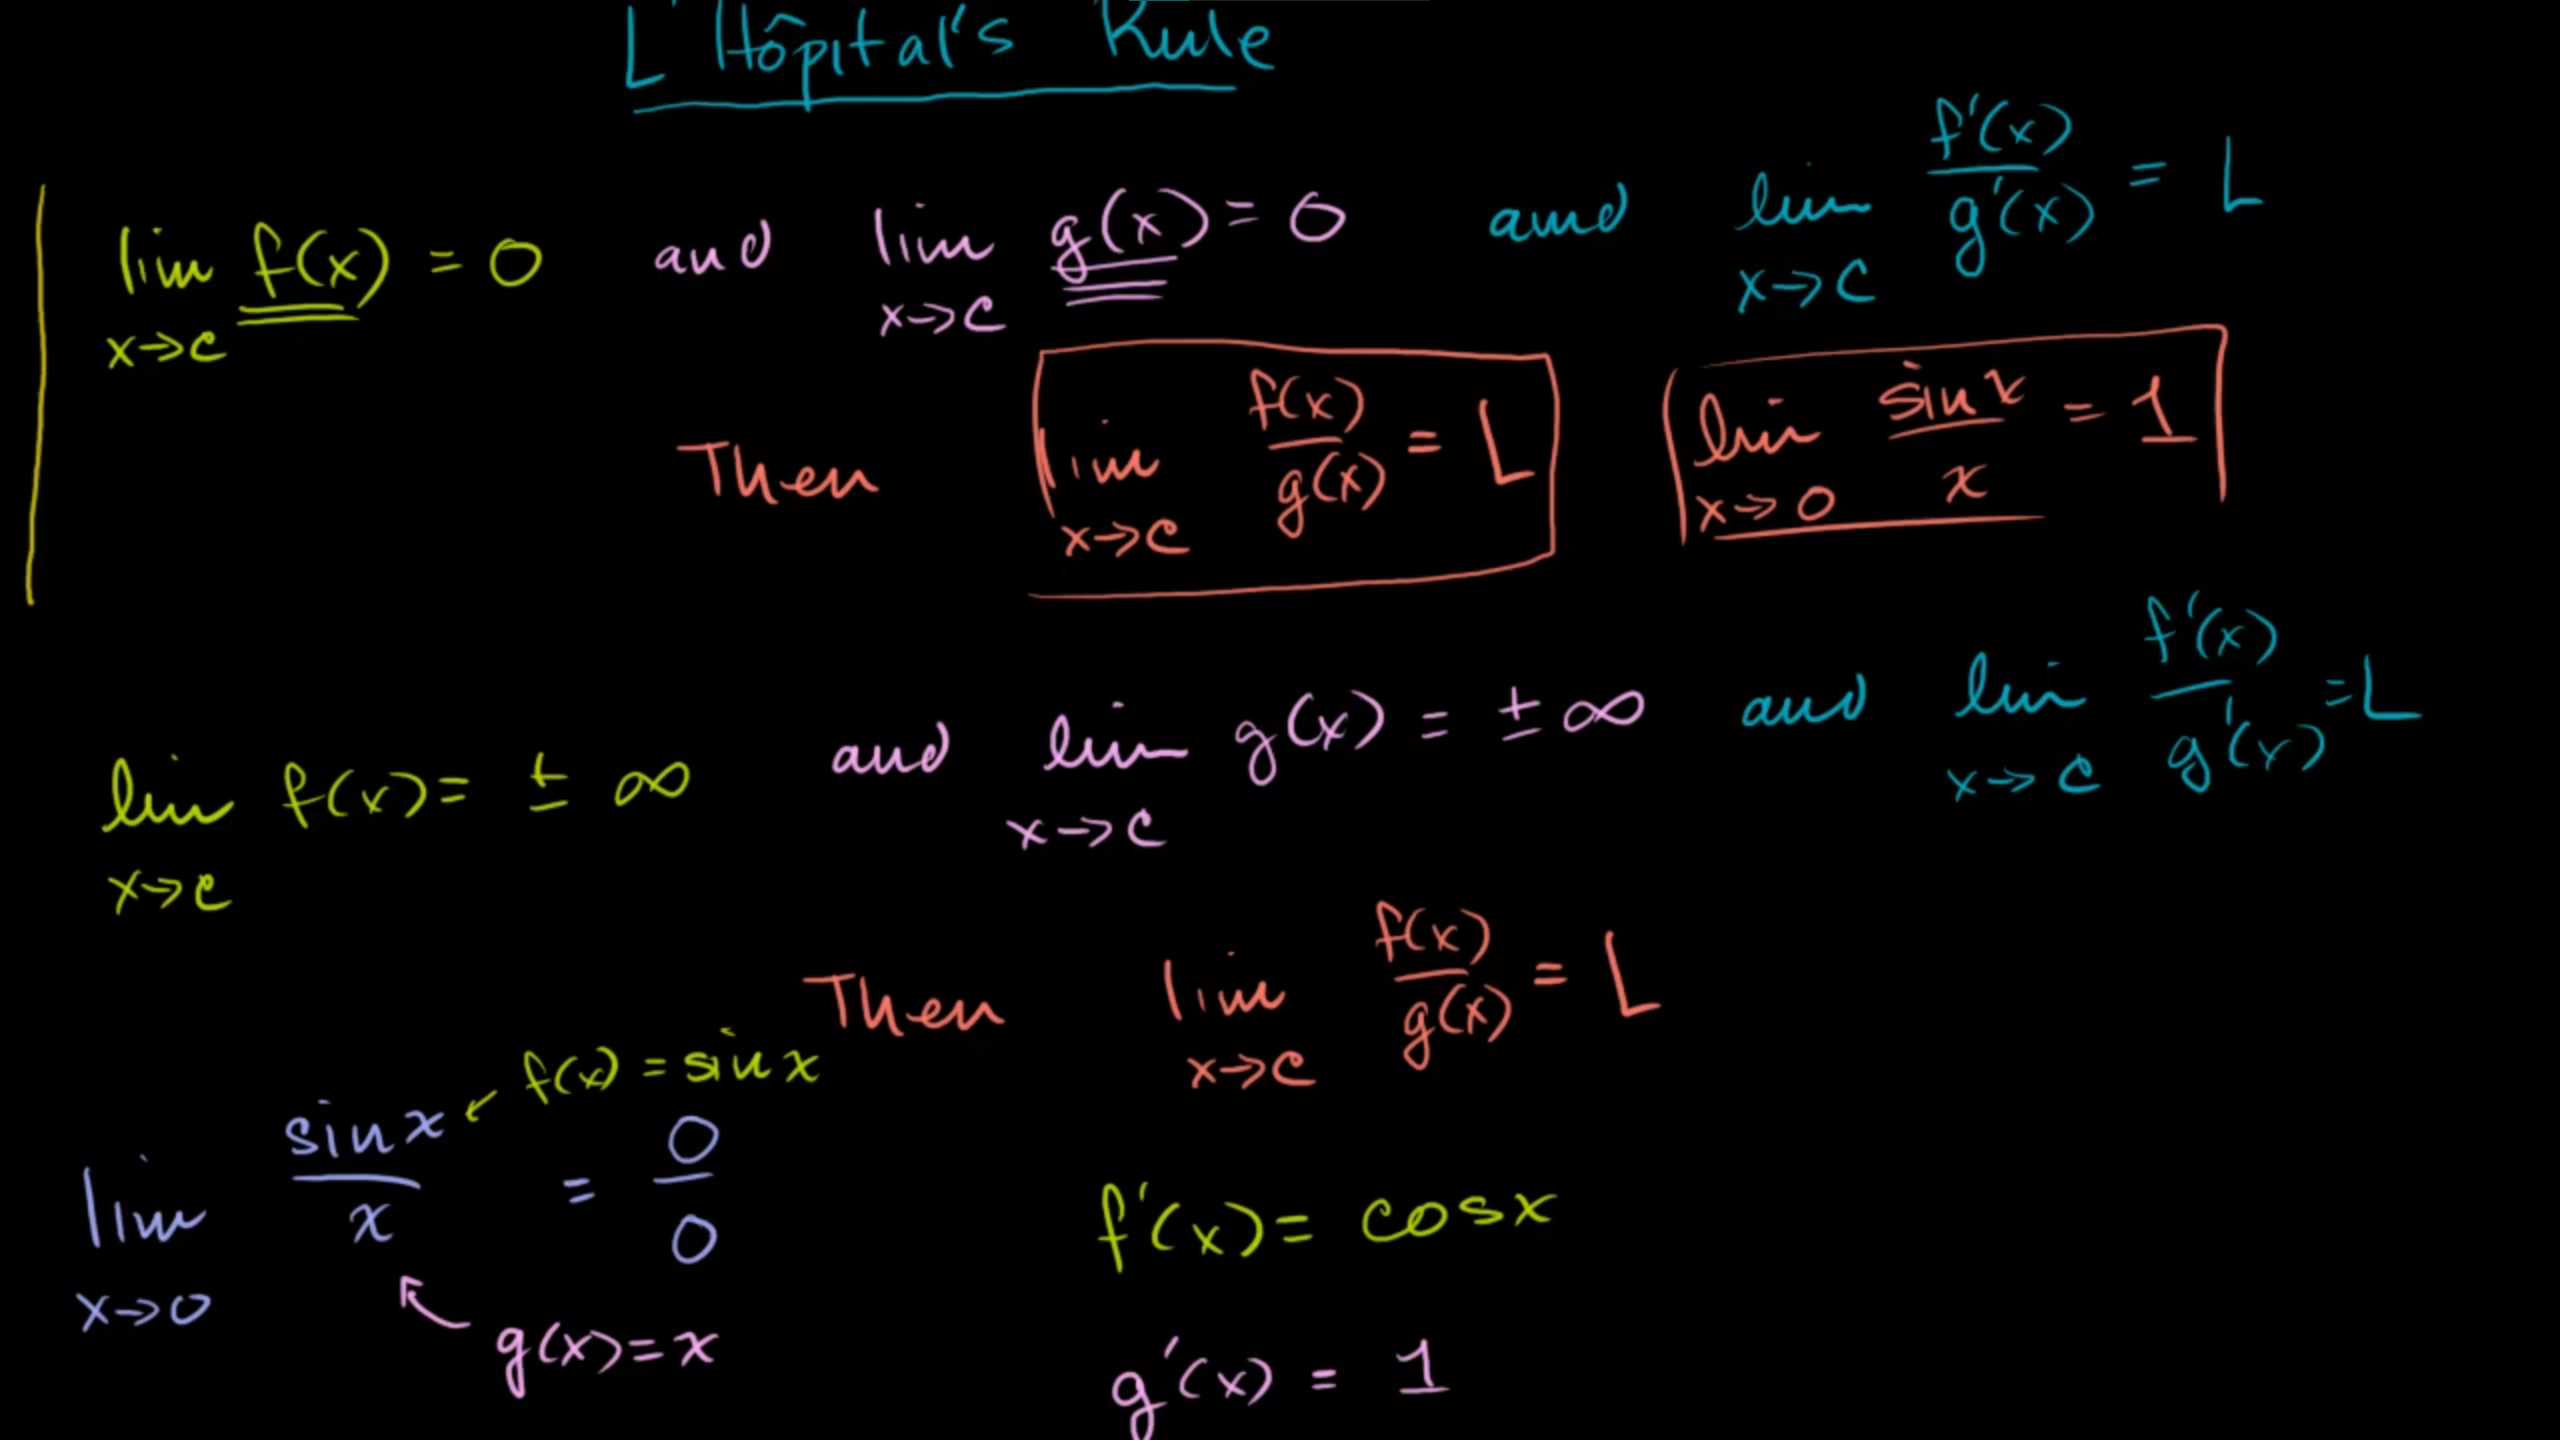 L'Hôpital's Rule
lim x→c f(x) = 0 and lim x→c g(x) = 0 and lim x→c f'(x)/g'(x) = L
Then lim x→c f(x)/g(x) = L lim x→0 sin x/x = 1
lim x→c f(x) = ± ∞ and lim x→c g(x) = ± ∞ and lim x→c f'(x)/g'(x) = L
Then lim x→c f(x)/g(x) = L
f(x) = sin x
lim x→0 sin x/x = 0/0
g(x) = x
f'(x) = cos x
g'(x) = 1